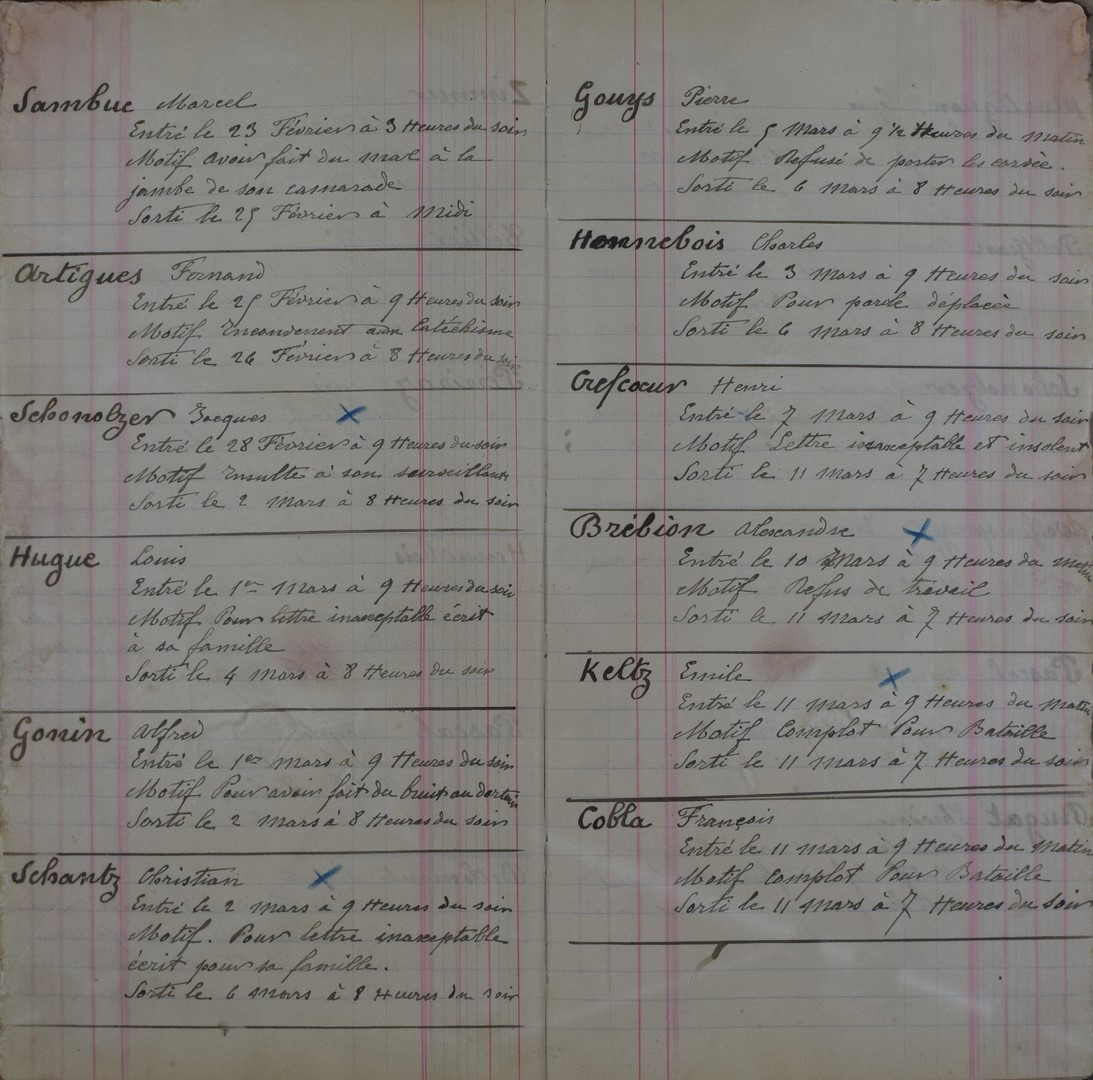 Sambuc Marcel
Entré le 23 Février à 3 Heures du soir
Motif avoir fait du mal à la
jambe de son camarade
Sorti le 25 Février à Midi
Artigues Fernand
Entré le 25 Février à 9 Heures du soir
Motif Inconvenent aux Catéchisme
Sorti le 26 Février à 8 Heures du soir
Schonolzer Jacques
Entré le 28 Février à 9 Heures du soir
Motif Insulte à son surveillant
Sorti le 2 Mars à 8 Heures du soir
Hugue Louis
Entré le 1er Mars à 9 Heures du soir
Motif Pour lettre inaxeptable écrit
à sa famille
Sorti le 4 mars à 8 Heures du soir
Gonin Alfred
Entré le 1er Mars à 9 Heures du soir
Motif Pour avoir fait du bruit au dortoir
Sorti le 2 mars à 8 Heures du soir
Schantz Christian
Entré le 2 mars à 9 Heures du soir
Motif. Pour lettre inaxeptable
écrit pour sa famille.
Sorti le 6 mars à 8 Heures du soir
Gouys Pierre
Entré le 5 Mars à 9 1/2 Heures du matin
Motif Refusé de porter les
Sorti le 6 mars à 8 Heures du soir
Honnebois Charles
Entré le 3 mars à 9 Heures du soir
Motif Pour parole déplacée
Sorti le 6 mars à 8 Heures du soir
Crefcoeur Henri
Entré le 7 Mars à 9 Heures du soir
Motif Lettre inaxeptable et insolent
Sorti le 11 mars à 7 Heures du soir
Brébion Alexandre
Entré le 10 Mars à 9 Heures du matin
Motif Refus de travail
Sorti le 11 mars à 7 Heures du soir
Keltz Emile
Entré le 11 mars à 9 Heures du matin
Motif Complot Pour Bataille
Sorti le 11 Mars à 7 Heures du soir
Cobla François
Entré le 11 mars à 9 Heures du Matin
Motif Complot Pour Bataille
Sorti le 11 Mars à 7 Heures du soir